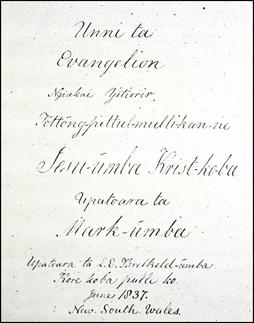 Unni ta
Evangelion
Ngiakai Yitirrir
Tottóng-pittul-mulli-kan-ne
Jesu-úmba Krist-koba
Upatoara ta
Mark-úmba
Upatoara ta L.E. Threlkeld-úmba
Kóre koba pulle ko.
June 1837.
New South Wales.